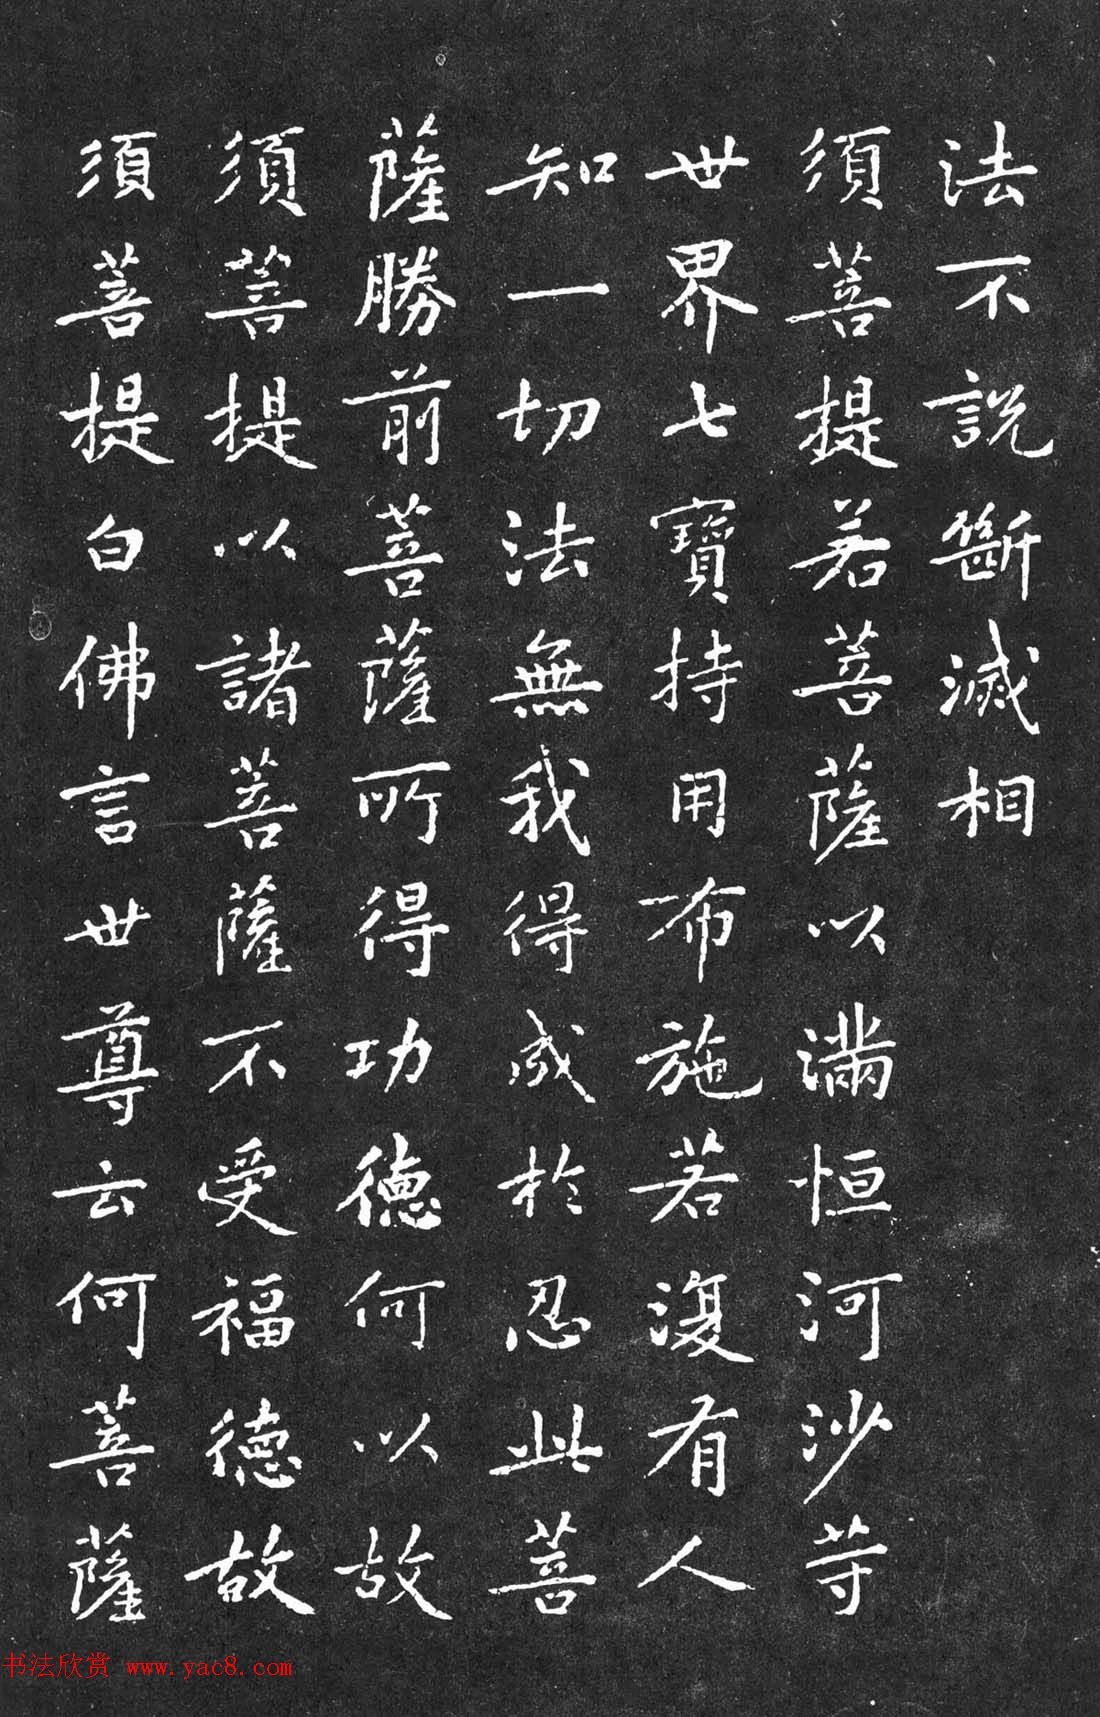 法不說斷滅相
須菩提若菩薩以滿恒河沙等
世界七寶持用布施若復有人
知一切法無我得成於忍此菩
薩勝前菩薩所得功德何以故
須菩提以諸菩薩不受福德故
須菩提白佛言世尊云何菩薩
书法欣赏 www.yac8.com